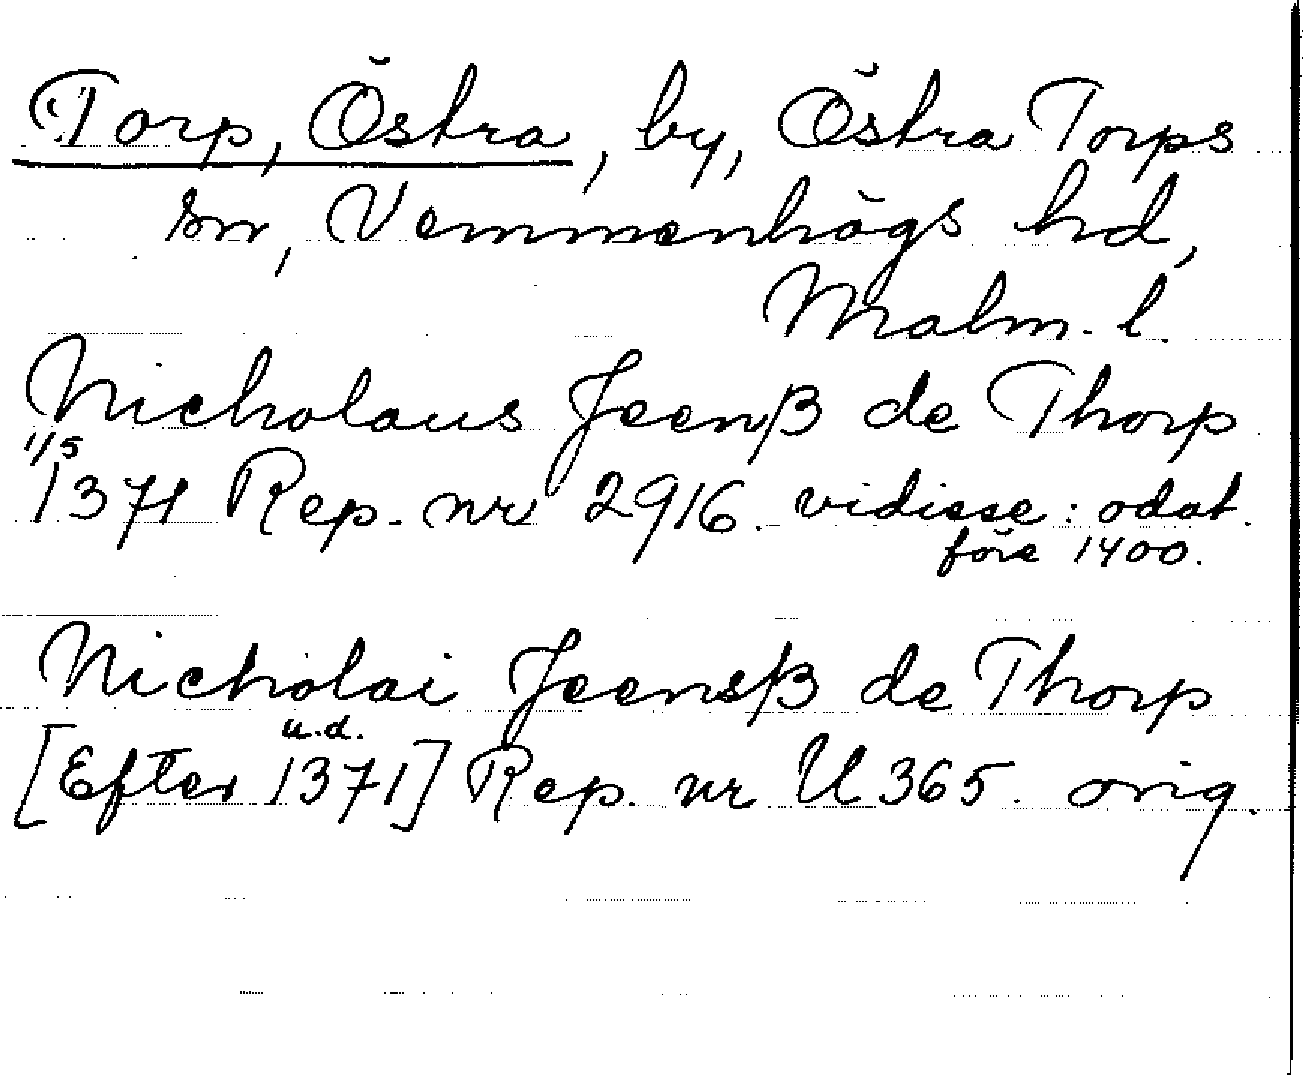 Torp, Östra, by, Östra Torps
sn, Vemmenhögs hd,
Malm. l.
Nicholaus Jeenß de Thorp
1/5
1371 Rep. nr 2916. vidisse: odat.
före 1400.
Nicholai Jeensß de Thorp
u.d.
[Efter 1371] Rep. nr U 365. orig.